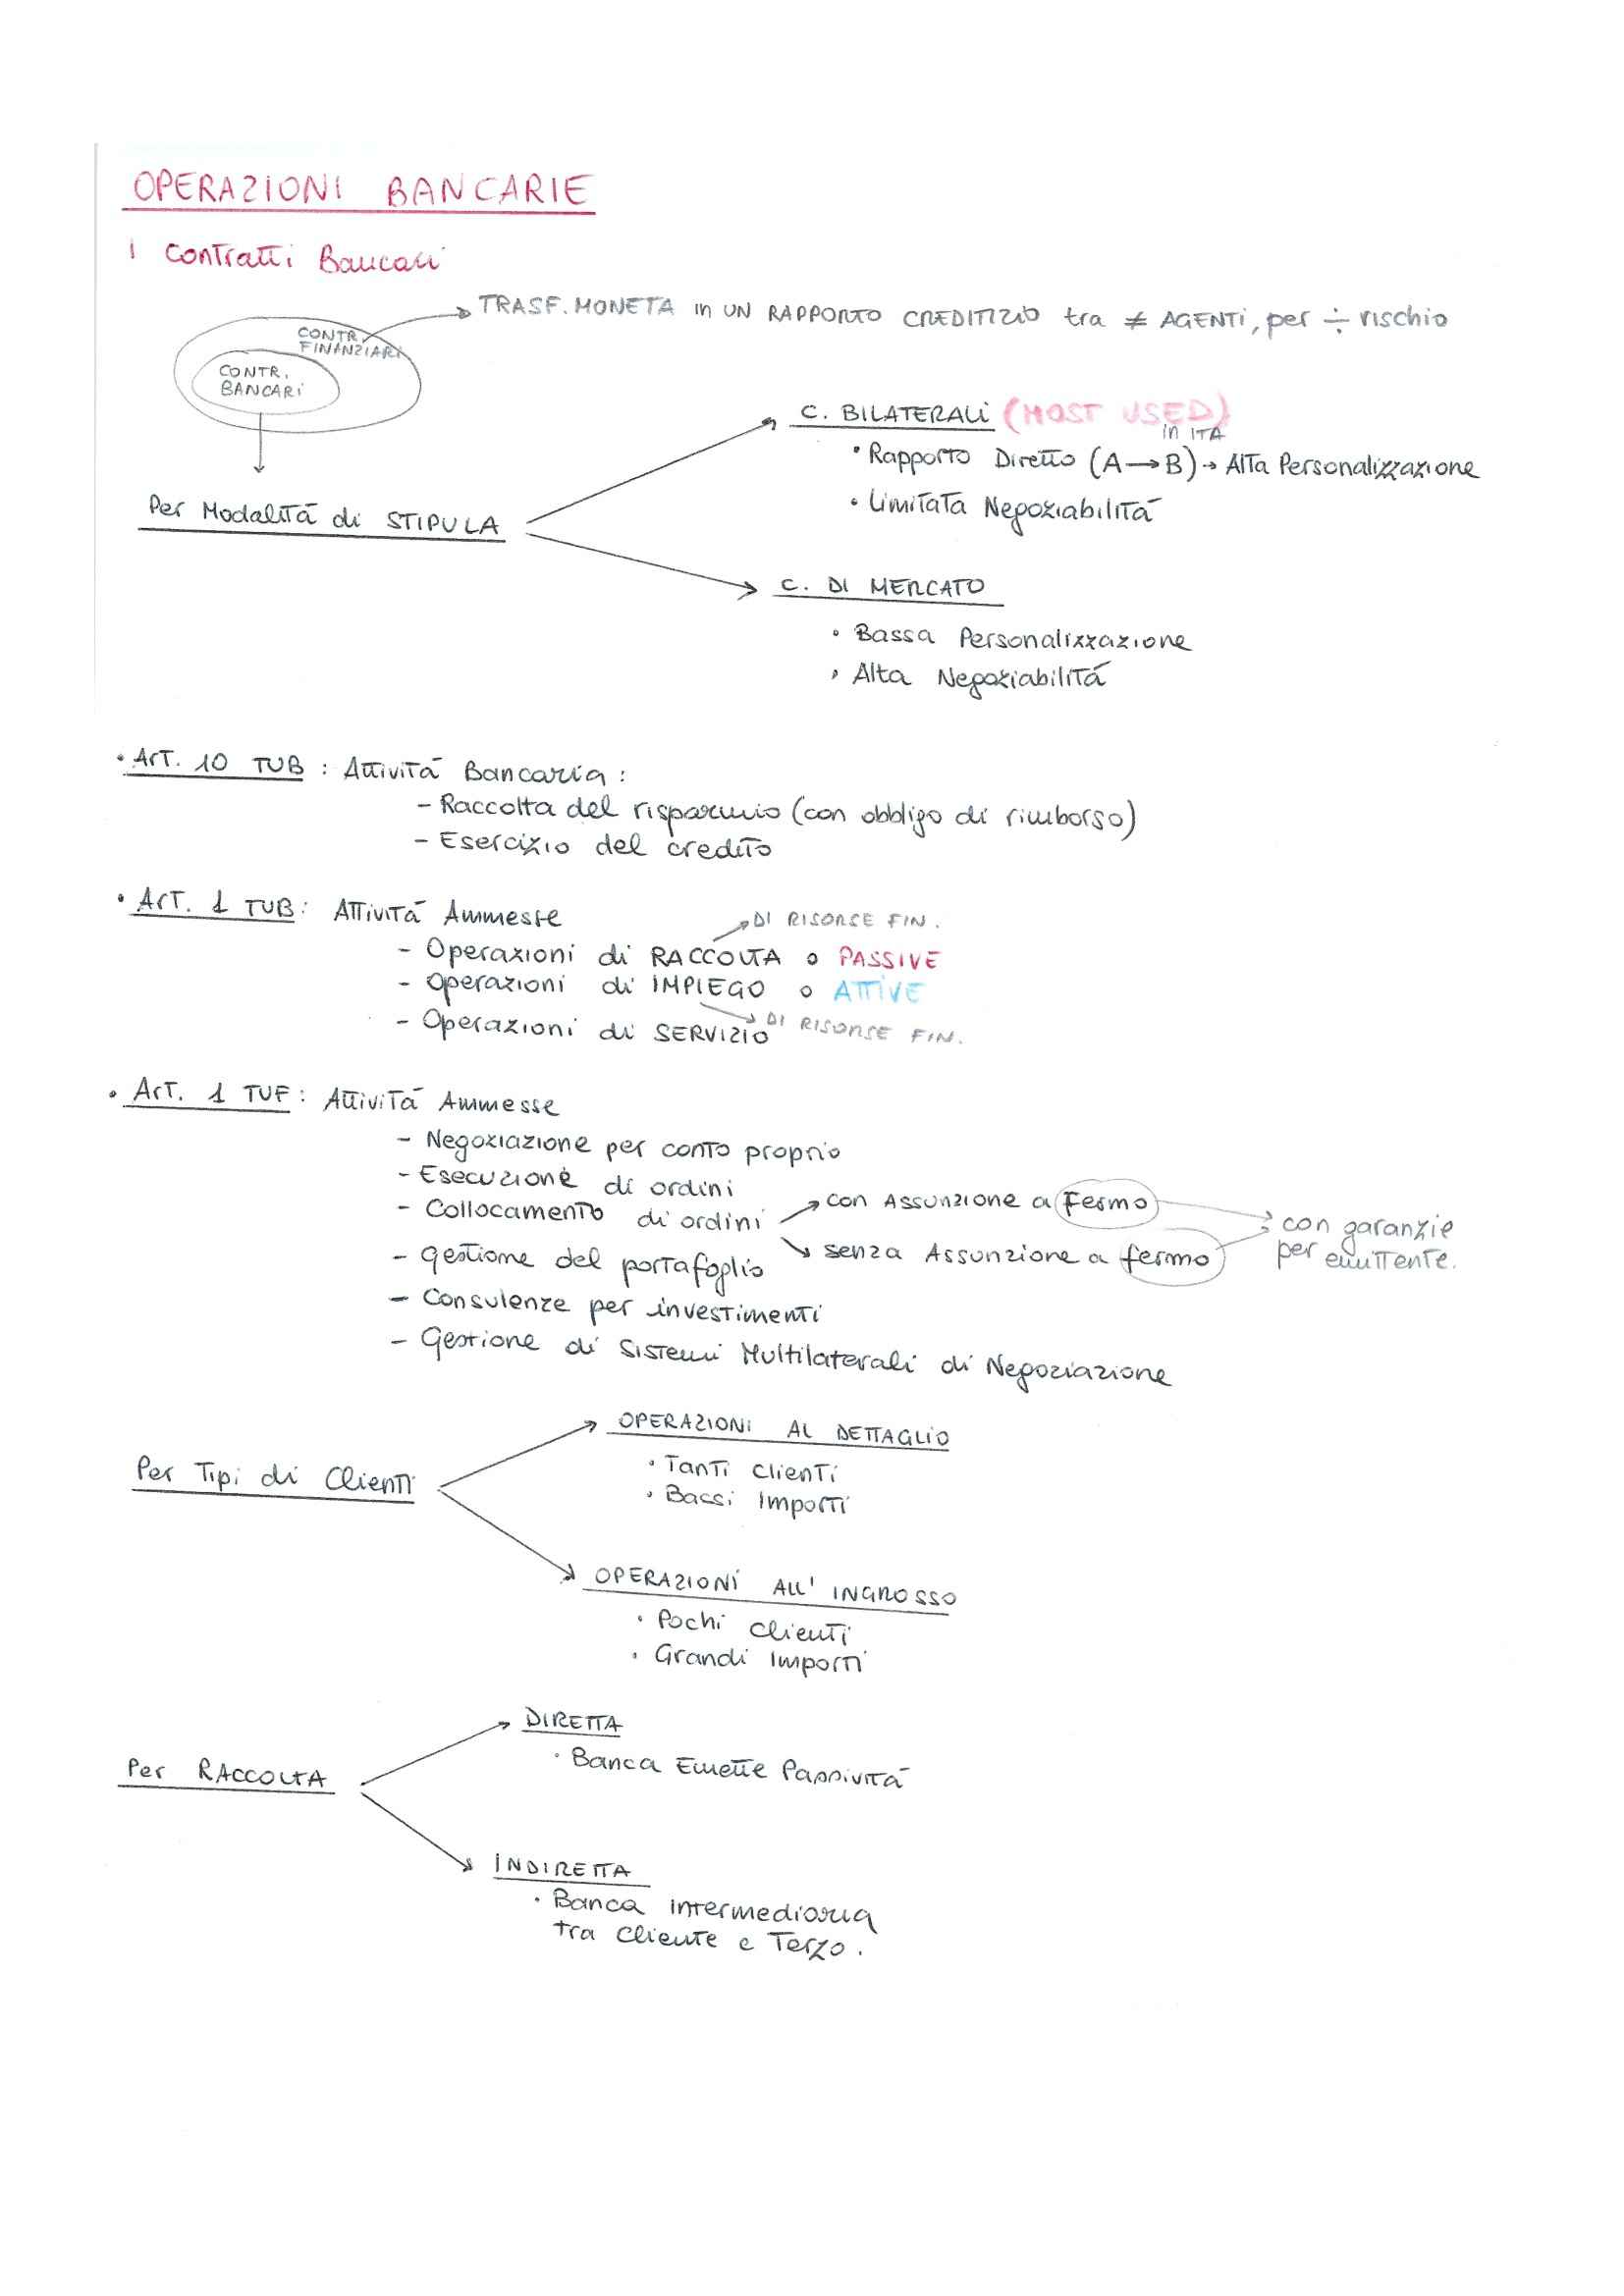 OPERAZIONI BANCARIE
I Contratti Bancari
TRASF. MONETA in UN RAPPORTO CREDITIZIO tra ≠ AGENTI, per ÷ rischio
CONTR. FINANZIARI
CONTR. BANCARI
C. BILATERALI (MOST USED)
in ITA
• Rapporto Diretto (A→B) → Alta Personalizzazione
• Limitata Negoziabilitá
Per Modalitá di STIPULA
C. DI MERCATO
• Bassa Personalizzazione
• Alta Negoziabilitá
• Art. 10 TUB : Attivitá Bancaria :
- Raccolta del risparmio (con obbligo di rimborso)
- Esercizio del credito
• Art. 1 TUB : Attivitá Ammesse
DI RISORSE FIN.
- Operazioni di RACCOLTA o PASSIVE
- Operazioni di IMPIEGO o ATTIVE
- Operazioni di SERVIZIO
DI RISORSE FIN.
• Art. 1 TUF : Attivitá Ammesse
- Negoziazione per conto proprio
- Esecuzione di ordini
- Collocamento di ordini
con Assunzione a Fermo
senza Assunzione a fermo
con garanzie
per emittente.
- gestione del portafoglio
- Consulenze per investimenti
- Gestione di Sistemi Multilaterali di Negoziazione
OPERAZIONI AL DETTAGLIO
• Tanti Clienti
• Bassi Importi
Per Tipi di Clienti
OPERAZIONI ALL' INGROSSO
• Pochi Clienti
• Grandi Importi
DIRETTA
• Banca Emette Passivitá
Per RACCOLTA
INDIRETTA
• Banca Intermediaria
tra Cliente e Terzo.